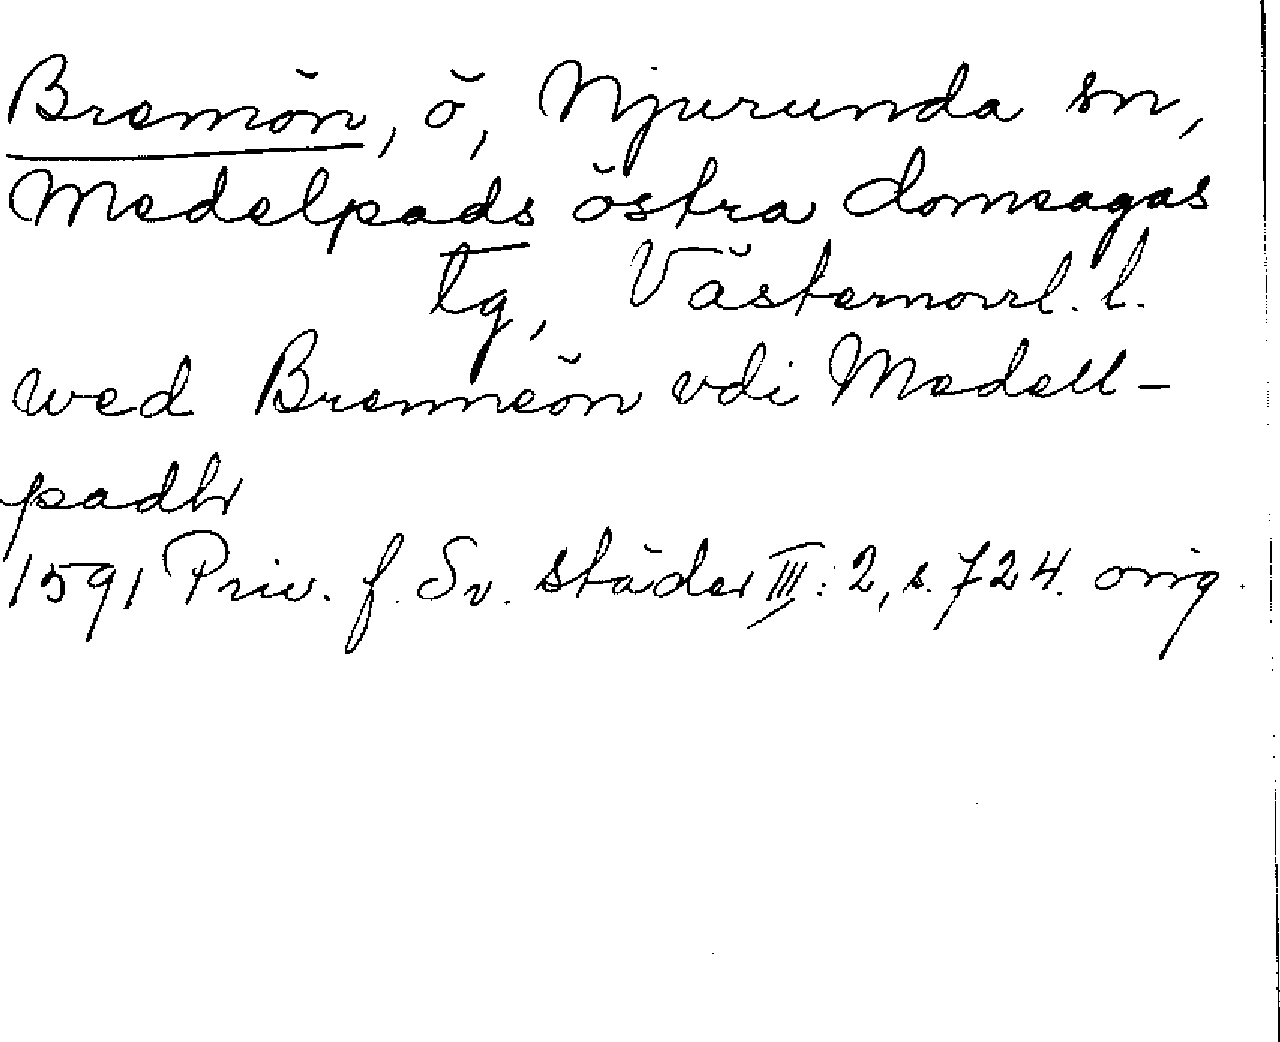 Bremön, ö, Njurunda sn,
Medelpads östra domsagas
tg, Västernorrl. l.
wed Bremneön vdi Medell-
padh
1591 Priv. f. Sv. städer III: 2, s. 724. orig.